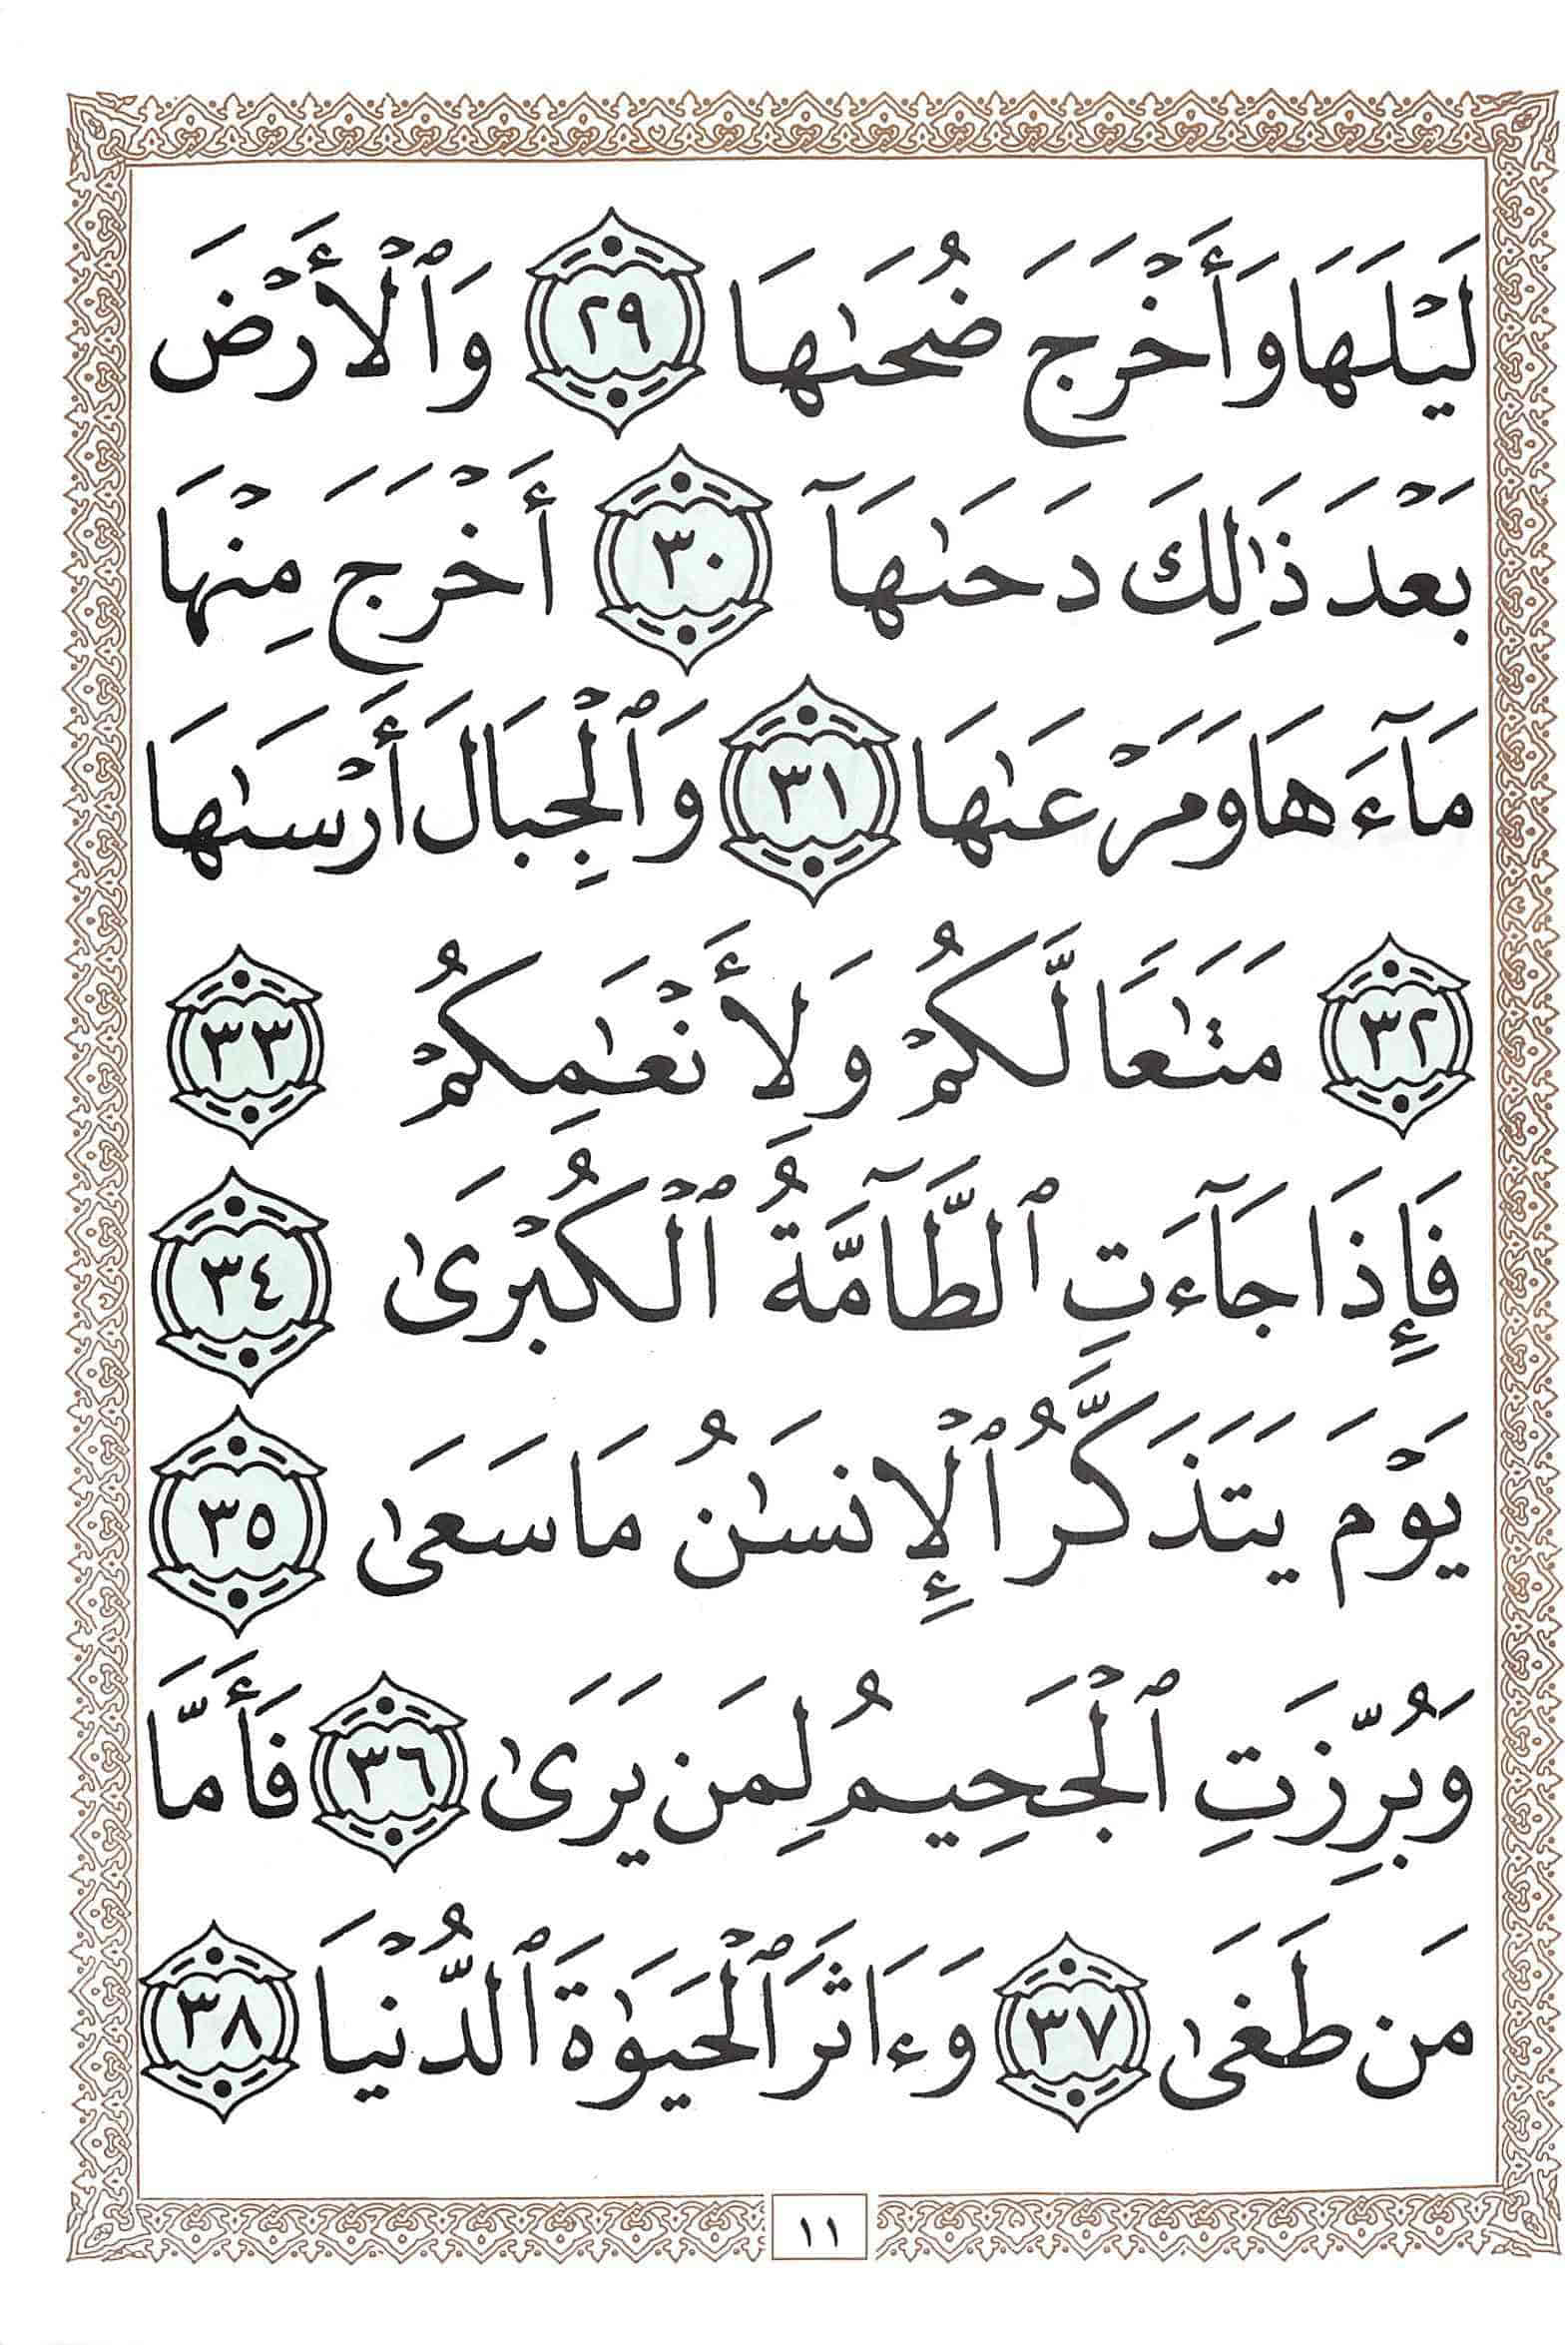 لَيۡلَهَا وَأَخۡرَجَ ضُحَىٰهَا ٢٩ وَٱلۡأَرۡضَ
بَعۡدَ ذَٰلِكَ دَحَىٰهَآ ٣٠ أَخۡرَجَ مِنۡهَا
مَآءَهَا وَمَرۡعَىٰهَا ٣١ وَٱلۡجِبَالَ أَرۡسَىٰهَا
٣٢ مَتَٰعًا لَّكُمۡ وَلِأَنۡعَٰمِكُمۡ ٣٣
فَإِذَا جَآءَتِ ٱلطَّآمَّةُ ٱلۡكُبۡرَىٰ ٣٤
يَوۡمَ يَتَذَكَّرُ ٱلۡإِنسَٰنُ مَا سَعَىٰ ٣٥
وَبُرِّزَتِ ٱلۡجَحِيمُ لِمَن يَرَىٰ ٣٦ فَأَمَّا
مَن طَغَىٰ ٣٧ وَءَاثَرَ ٱلۡحَيَوٰةَ ٱلدُّنۡيَا ٣٨
١١